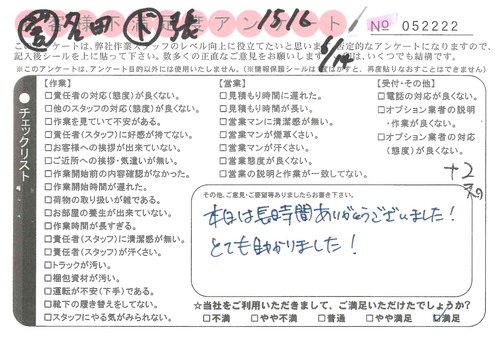 お客様不満足度アンケート
1516
6/14
No 052222
このアンケートは、弊社作業スタッフのレベル向上に役立てたいと思います。否定的なアンケートになりますので、
記入後シールを上に貼って下さい。数多くの正直なご意見をお願いします。
は、いくつでも結構です。
※このアンケートは、アンケート目的以外には使用いたしません。
チェックリスト
【作業】
□責任者の対応(態度)が良くない。
□他のスタッフの対応(態度)が良くない。
□作業を見ていて不安がある。
□責任者(スタッフ)に好感が持てない。
□お客様への挨拶が出来ていない。
□ご近所への挨拶・気遣いが無い。
□作業開始前の内容確認がなかった。
□作業開始時間が遅れた。
□荷物の取り扱いが雑である。
□お部屋の養生が出来ていない。
□作業時間が長すぎる。
□責任者(スタッフ)に清潔感が無い。
□責任者(スタッフ)が汗くさい。
□トラックが汚い。
□梱包資材が汚い。
□運転が不安(下手)である。
□靴下の履き替えをしてない。
□スタッフにやる気がみられない。
【営業】
□見積もり時間に遅れた。
□見積もり時間が長い。
□営業マンに清潔感が無い。
□営業マンが煙草くさい。
□営業マンが汗くさい。
□営業態度が良くない。
□営業の説明と作業が一致してない。
【受付・その他】
□電話の対応が良くない。
□オプション業者の説明
・作業が良くない。
□オプション業者の対応
(態度)が良くない。
+2
その他、ご意見・ご要望等ありましたらお書き下さい。
本日は長時間ありがとうございました!
とても助かりました!
☆当社をご利用いただきまして、ご満足いただけたでしょうか?
□不満 □やや不満 □普通 □やや満足 ☑満足